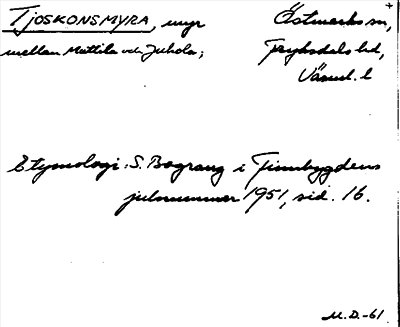 TJOSKONSMYRA, myr
mellan Mattila och Juhola;
Östmarks sn,
Fryksdals hd,
Värml. l
Etymologi: S. Bograng i Finnbygdens
julnummer 1951, sid. 16.
M.D.-61